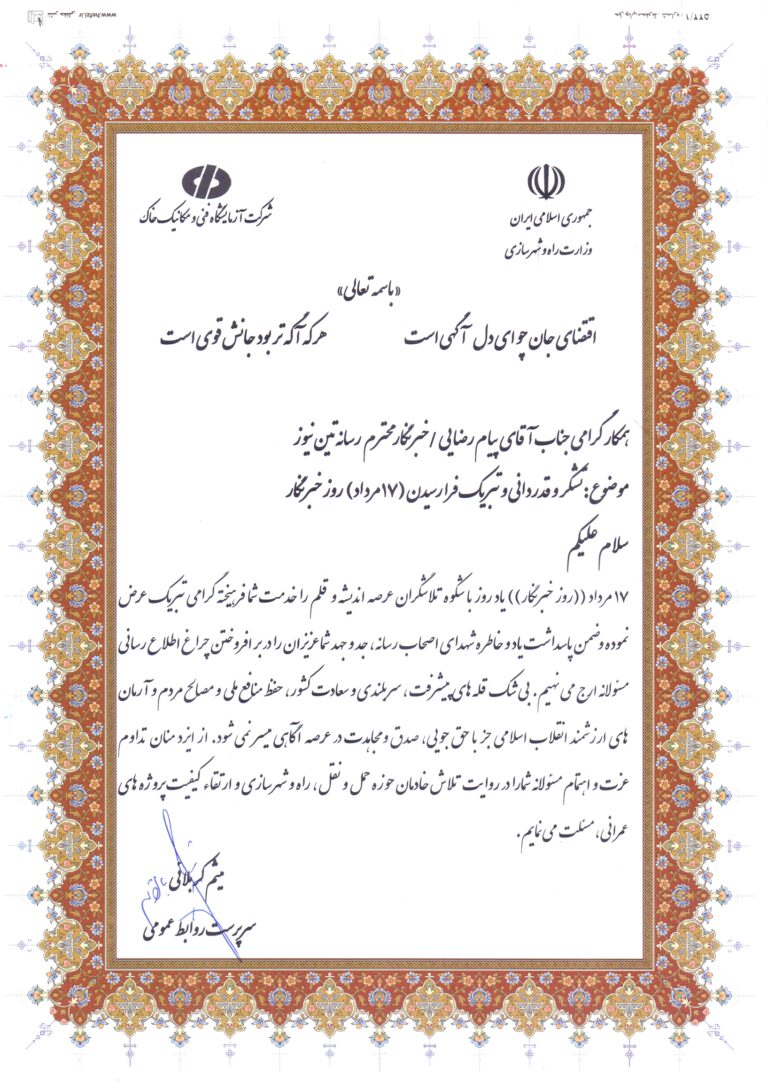 شرکت آزمایشگاه فنی و مکانیک خاک
جمهوری اسلامی ایران
وزارت راه و شهرسازی
«باسمه تعالی»
اقتضای جان چو ای دل آگهی است هر که آگه تر بود جانش قوی است
همکار گرامی جناب آقای پیام رضایی / خبرنگار محترم رسانه تین نیوز
موضوع : تشکر و قدردانی و تبریک فرارسیدن (۱۷ مرداد) روز خبرنگار
سلام علیکم
۱۷ مرداد ((روز خبرنگار)) یاد روز باشکوه تلاشگران عرصه اندیشه و قلم را خدمت شما فرهیخته گرامی تبریک عرض
نموده و ضمن پاسداشت یاد و خاطره شهدای اصحاب رسانه، جد و جهد شما عزیزان را در بر افروختن چراغ اطلاع رسانی
مسئولانه ارج می نهیم. بی شک قله های پیشرفت، سربلندی و سعادت کشور، حفظ منافع ملی و مصالح مردم و آرمان
های ارزشمند انقلاب اسلامی جز با حق جویی، صدق و مجاهدت در عرصه آگاهی میسر نمی شود. از ایزد منان تداوم
عزت و اهتمام مسئولانه شما را در روایت تلاش خادمان حوزه حمل و نقل، راه و شهرسازی و ارتقاء کیفیت پروژه های
عمرانی، مسئلت می نمایم.
میثم کربلائی
سرپرست روابط عمومی
www.hefei.ir